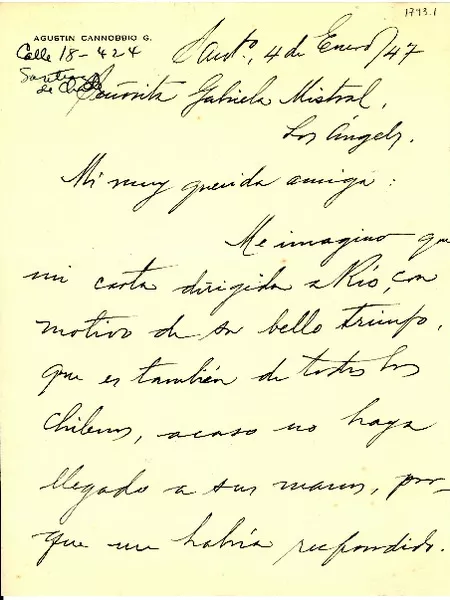 1793.1
AGUSTIN CANNOBBIO G.
Calle 18-424
Santiago
de Chile
Santo., 4 de Enero/47
Señorita Gabriela Mistral,
Los Ángeles.
Mi muy querida amiga:
Me imagino que
mi carta dirigida a Río, con
motivo de su bello triunfo,
que es también de todos los
chilenos, acaso no haya
llegado a sus manos, por-
que me habría respondido.